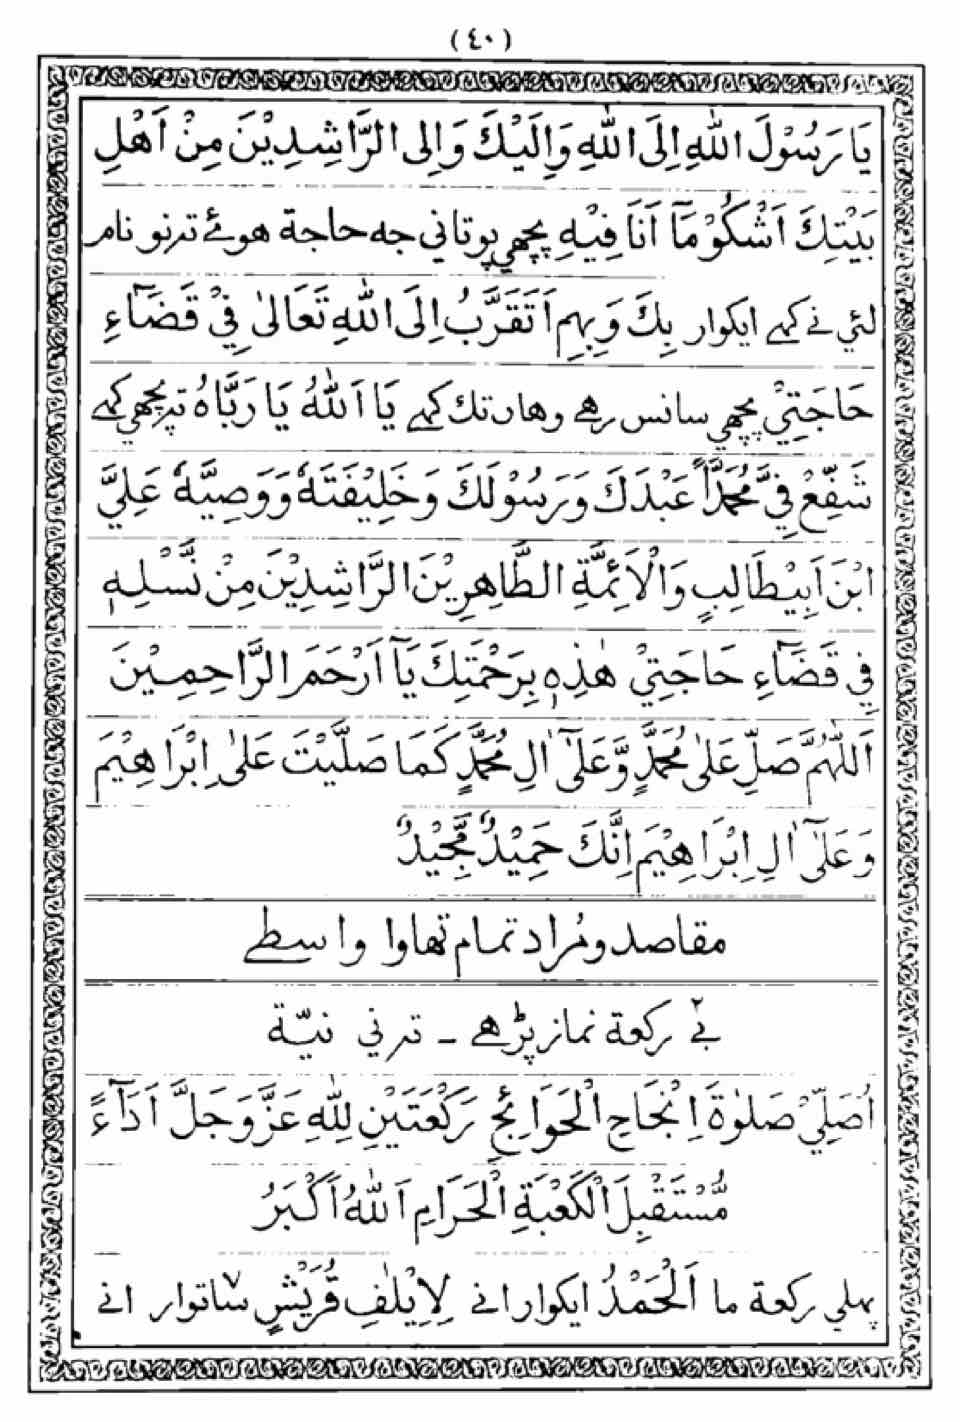 (٤٠)
يَا رَسُوْلَ اللهِ اِلَى اللهِ وَاِلَيْكَ وَاِلى الرَّاشِدِيْنَ مِنْ اَهْلِ
بَيْتِكَ اَشْكُوْ مَآ اَنَا فِيْهِ پچھي پوتاني جه حاجة هوئے تہ نو نام
لئي نے كہے ايكوار بِكَ وَبِهِم اَتَقَرَّبُ اِلَى اللهِ تَعَالىٰ فِيْ قَضَآءِ
حَاجَتِيْ پچھي سانس رهے وهار تك كہے يَا اَللهُ يَا رَبَّاهُ تہ پچھي كہے
شَفِّعْ فِيَّ مُحَمَّدًا عَبْدَكَ وَرَسُوْلَكَ وَخَلِيْفَتَهٗ وَوَصِيَّهٗ عَلِيَّ
ابْنَ اَبِيْطَالِبٍ وَالْاَئِمَّةِ الطَّاهِرِيْنَ الرَّاشِدِيْنَ مِنْ نَّسْلِهٖ
فِي قَضَآءِ حَاجَتِيْ هٰذِهٖ بِرَحْمَتِكَ يَآ اَرْحَمَ الرَّاحِمِيْنَ
اَللّٰهُمَّ صَلِّ عَلىٰ مُحَمَّدٍ وَّعَلىٰٓ اٰلِ مُحَمَّدٍ كَمَا صَلَّيْتَ عَلىٰ اِبْرَاهِيْمَ
وَعَلىٰٓ اٰلِ اِبْرَاهِيْمَ اِنَّكَ حَمِيْدٌ مَّجِيْدٌ
مقاصد ومُراد تمام تھاوا واسطے
بے٢ ركعة نماز پڑهے ـ تہ ني نيّة
اُصَلِّيْ صَلوٰةَ اِنْجَاحِ الْحَوَائِجِ رَكْعَتَيْنِ لِلّٰهِ عَزَّ وَجَلَّ اَدَآءً
مُّسْتَقْبِلَ الْكَعْبَةِ الْحَرَامِ اَللهُ اَكْبَرُ
پهلي ركعة ما اَلْحَمْدُ ايكوار انے لِاِيْلٰفِ قُرَيْشٍ سات٧وار انے